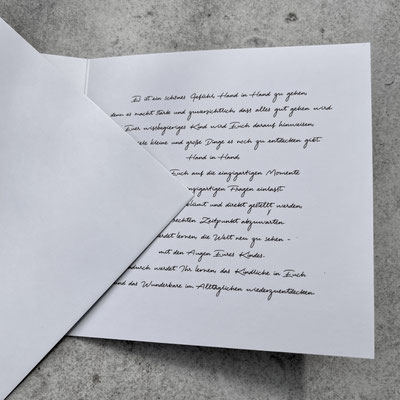 Es ist ein schönes Gefühl, Hand in Hand zu gehen,
denn es macht stark und zuversichtlich, dass alles gut gehen wird.
Euer wissbegieriges Kind wird Euch darauf hinweisen,
viele kleine und große Dinge es noch zu entdecken gibt.
Hand in Hand.
Euch auf die einzigartigen Momente
einzigartigen Fragen einlasst
und direkt gestellt werden,
rechten Zeitpunkt abzuwarten.
werdet lernen, die Welt neu zu sehen -
mit den Augen Eures Kindes.
dadurch werdet Ihr lernen, das Kindliche in Euch
und das Wunderbare im Alltäglichen wiederzuentdecken.